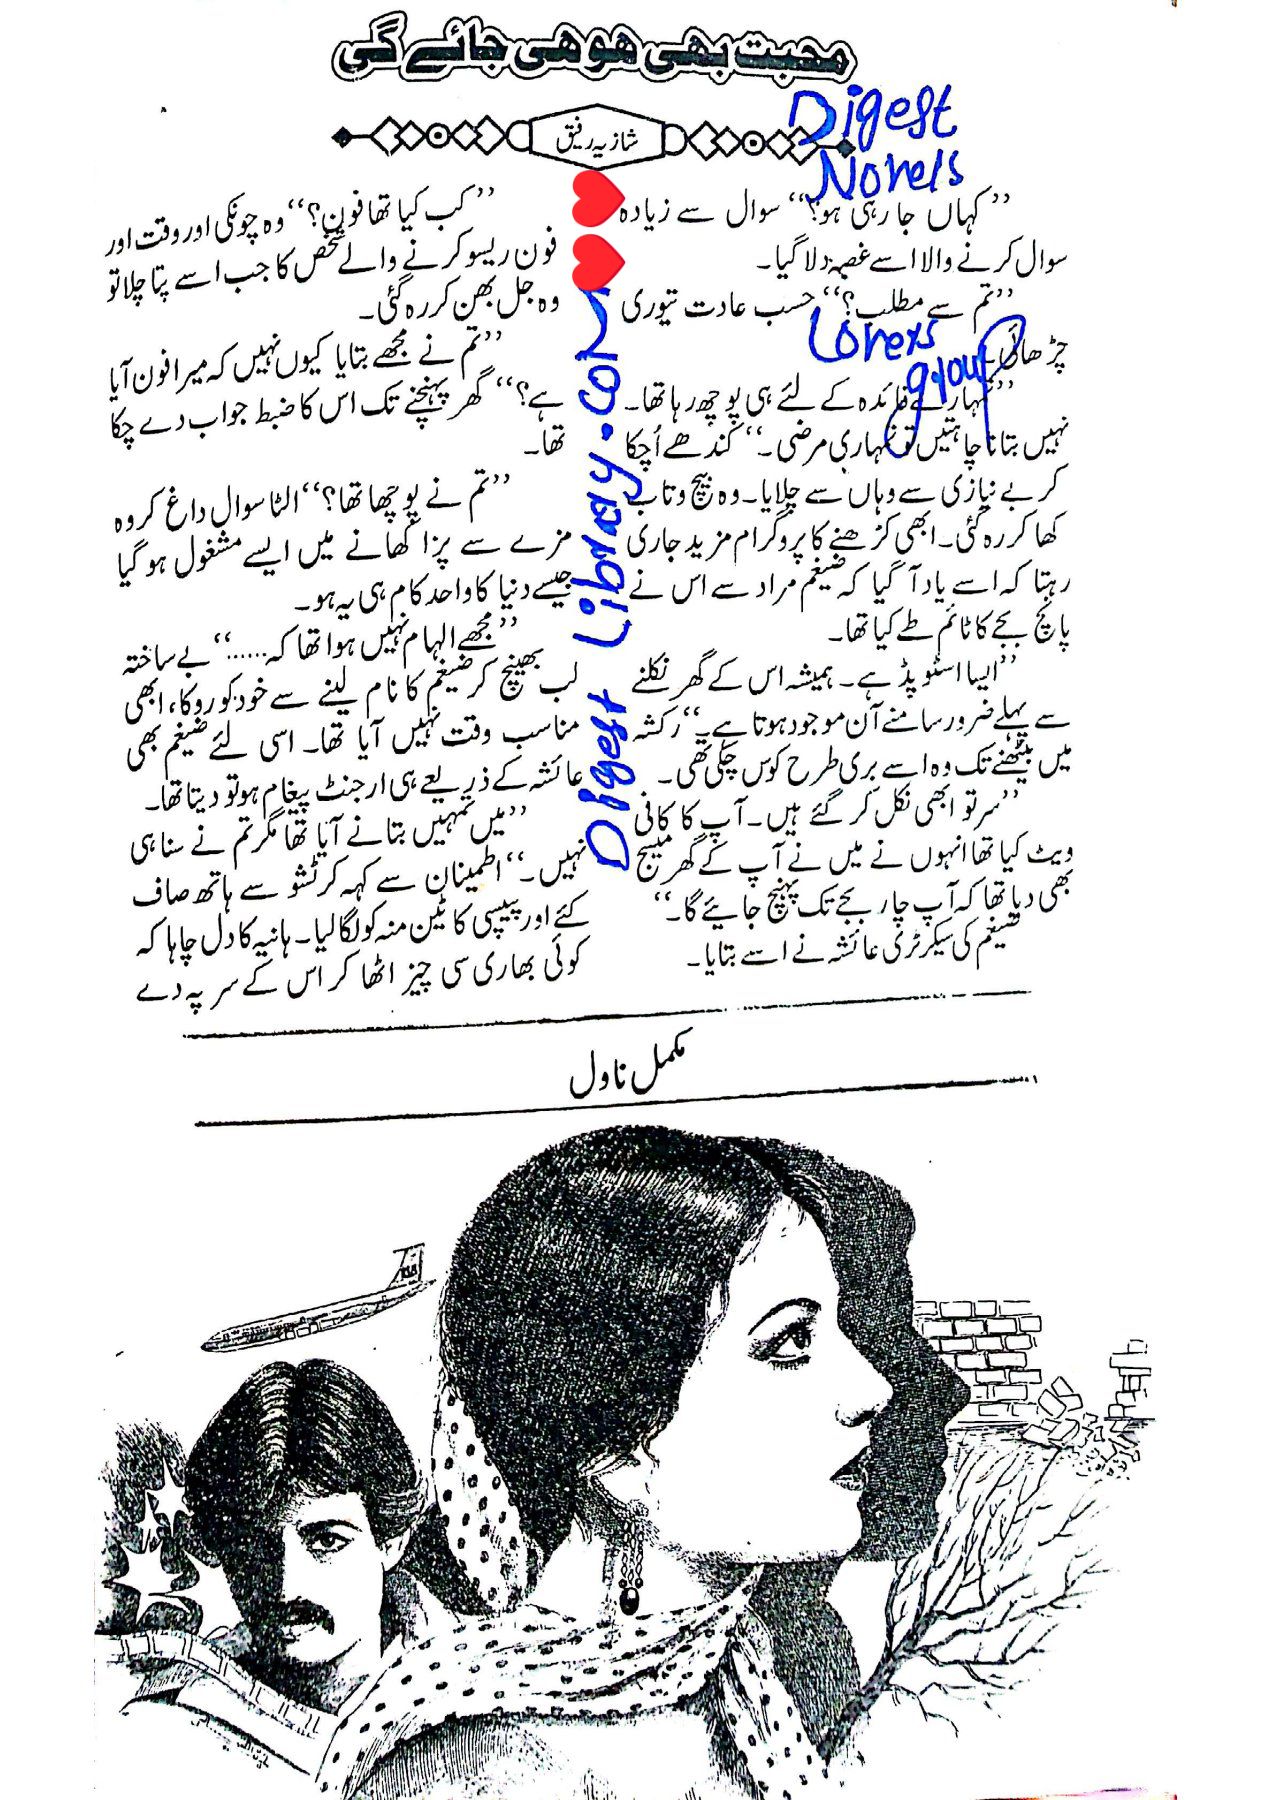 محبت بھی ہو ہی جائے گی
شازیہ رفیق
Digest
Novels
Lovers
group
Digest Library.com
’’کہاں جا رہی ہو؟‘‘ سوال سے زیادہ
سوال کرنے والا اسے غصہ دلا گیا۔
’’تم سے مطلب؟‘‘ حسب عادت تیوری
چڑھائی۔
’’تمہارے فائدہ کے لئے ہی پوچھ رہا تھا۔
نہیں بتانا چاہتیں تو تمہاری مرضی۔‘‘ کندھے اُچکا
کر بے نیازی سے وہاں سے چلایا۔ وہ پیچ و تاب
کھا کر رہ گئی۔ ابھی کڑھنے کا پروگرام مزید جاری
رہتا کہ اسے یاد آ گیا کہ ضیغم مراد سے اس نے
پانچ بجے کا ٹائم طے کیا تھا۔
’’ایسا اسٹوپڈ ہے۔ ہمیشہ اس کے گھر نکلنے
سے پہلے ضرور سامنے آن موجود ہوتا ہے۔‘‘ رکشہ
میں بیٹھنے تک وہ اسے بری طرح کوس چکی تھی۔
’’سر تو ابھی نکل کر گئے ہیں۔ آپ کا کافی
ویٹ کیا تھا انہوں نے میں نے آپ کے گھر میسج
بھی دیا تھا کہ آپ چار بجے تک پہنچ جائیے گا۔‘‘
ضیغم کی سیکرٹری عائشہ نے اسے بتایا۔
’’کب کیا تھا فون؟‘‘ وہ چونکی اور وقت اور
فون ریسو کرنے والے شخص کا جب اسے پتا چلا تو
وہ جل بھن کر رہ گئی۔
’’تم نے مجھے بتایا کیوں نہیں کہ میرا فون آیا
ہے؟‘‘ گھر پہنچنے تک اس کا ضبط جواب دے چکا
تھا۔
’’تم نے پوچھا تھا؟‘‘ الٹا سوال داغ کر وہ
مزے سے پزا کھانے میں ایسے مشغول ہو گیا
جیسے دنیا کا واحد کام ہی یہ ہو۔
’’مجھے الہام نہیں ہوا تھا کہ......‘‘ بے ساختہ
لب بھینچ کر ضیغم کا نام لینے سے خود کو روکا، ابھی
مناسب وقت نہیں آیا تھا۔ اسی لئے ضیغم بھی
عائشہ کے ذریعے ہی ارجنٹ پیغام ہو تو دیتا تھا۔
’’میں تمہیں بتانے آیا تھا مگر تم نے سنا ہی
نہیں۔‘‘ اطمینان سے کہہ کر ٹشو سے ہاتھ صاف
کئے اور پیپسی کا ٹین منہ کو لگا لیا۔ ہانیہ کا دل چاہا کہ
کوئی بھاری سی چیز اٹھا کر اس کے سر پہ دے
مکمل ناول